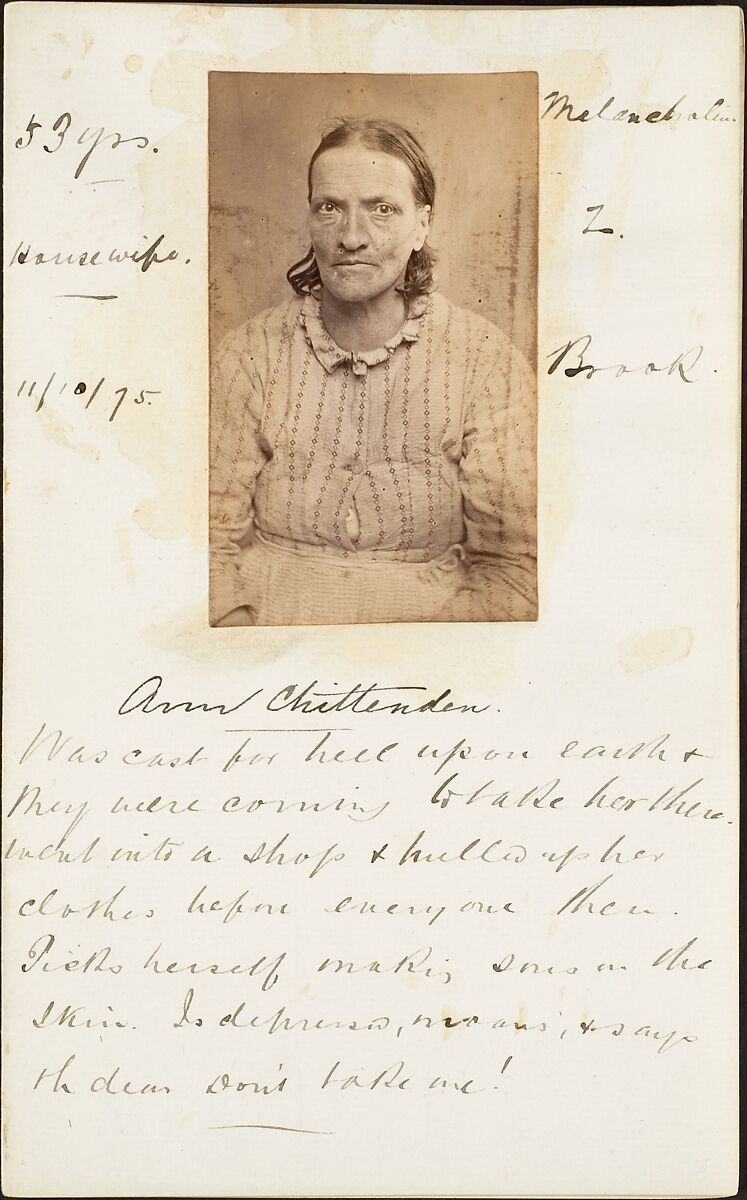 53 yrs.
Melancholia.
2.
Housewife.
Brook.
11/10/75.
Ann Chittenden.
Was cast for hell upon earth &
they were coming to take her there.
went into a shop & pulled up her
clothes before everyone there.
Picks herself making sores on the
skin. Is depressed, moans, & says
Oh dear Don't take me!